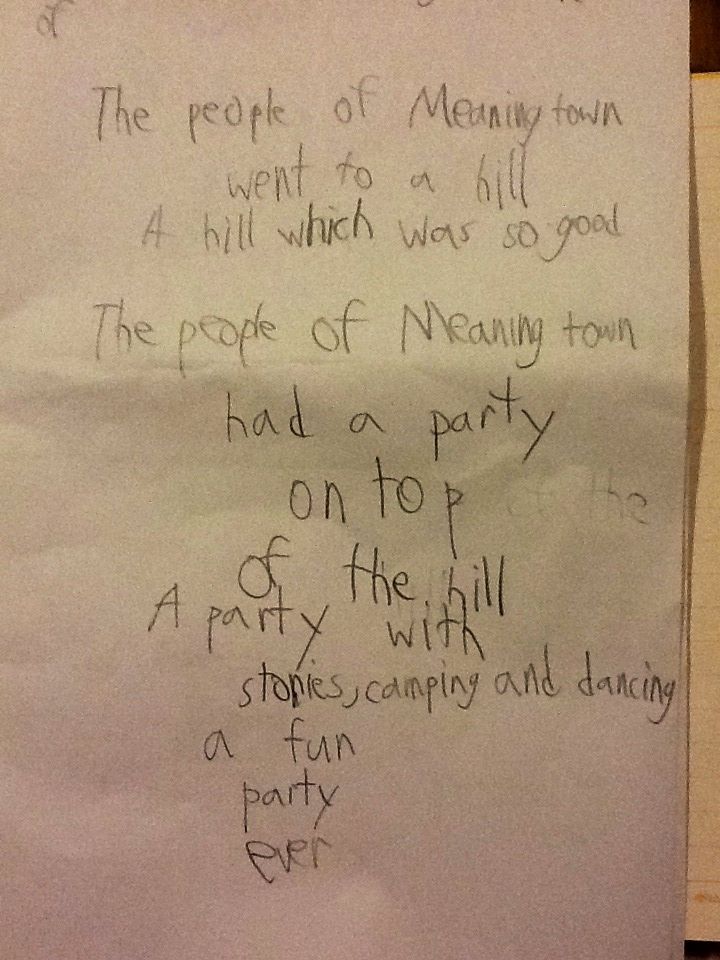 of
The people of Meaning town
went to a hill
A hill which was so good
The people of Meaning town
had a party
on top of the
of the hill
A party with
stories, camping and dancing
a fun
party
ever